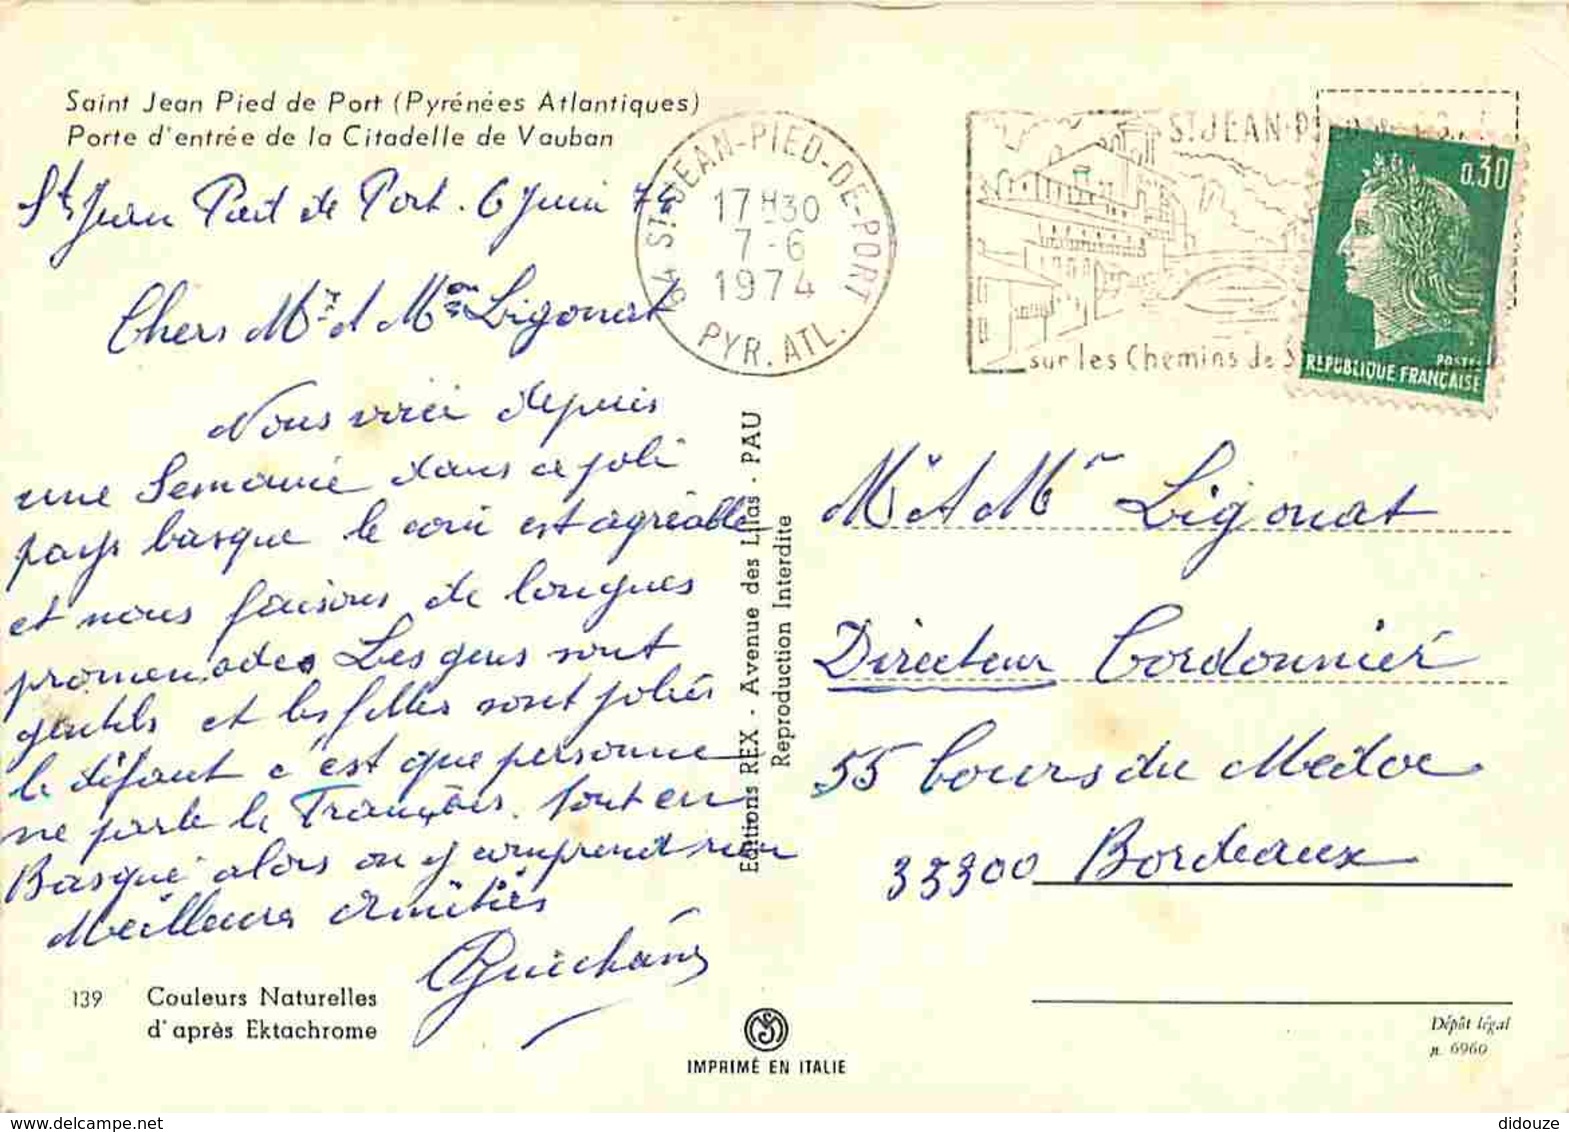 Saint Jean Pied de Port (Pyrénées Atlantiques)
Porte d'entrée de la Citadelle de Vauban
St Jean Pied de Port. 6 Juin 74
Chers Mr et Mme Ligonat
Nous voici depuis
une Semaine dans ce joli
pays basque le coin est agréable
et nous faisons de longues
promenades Les gens sont
gentils et les filles sont jolies
le défaut c'est que personne
ne parle le Français. tout en
Basque alors on y comprend rien
Meilleures Amitiés
139 Couleurs Naturelles
d'après Ektachrome
64 ST-JEAN-PIED-DE-PORT
17 H30
7-6
1974
PYR. ATL.
ST JEAN-PIED
sur les Chemins de S
0,30
POSTES
REPUBLIQUE FRANÇAISE
Editions REX - Avenue des Lilas - PAU
Reproduction Interdite
Mr & Mme Ligonat
Directeur Cordonnier
55 Cours du Medoc
33300 Bordeaux
IMPRIMÉ EN ITALIE
Dépôt légal
n. 6960
didouze